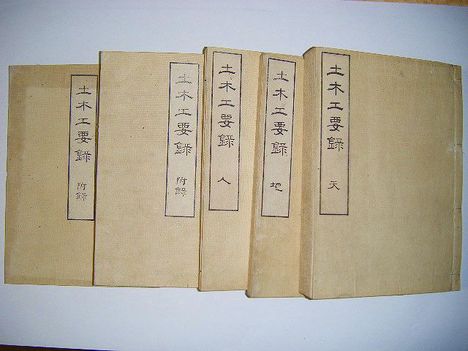 土木工要録 天
土木工要録 地
土木工要録 人
土木工要録 附録
土木工要録 附録